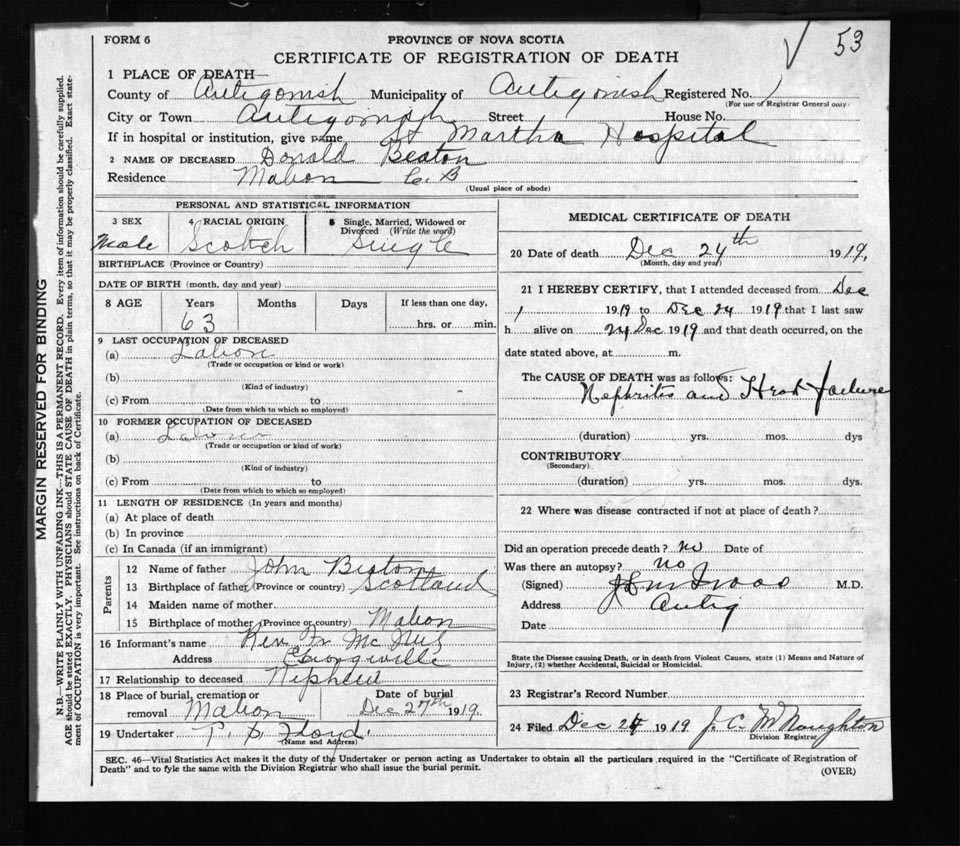 FORM 6
PROVINCE OF NOVA SCOTIA
53
CERTIFICATE OF REGISTRATION OF DEATH
1 PLACE OF DEATH—
County of Antigonish Municipality of Antigonish Registered No. 1
(For use of Registrar General only)
City or Town Antigonish Street House No.
If in hospital or institution, give name St Martha Hospital
2 NAME OF DECEASED Donald Beaton
Residence Mabou C. B
(Usual place of abode)
PERSONAL AND STATISTICAL INFORMATION
3 SEX 4 RACIAL ORIGIN 5 Single, Married, Widowed or Divorced (Write the word)
Male Scotch Single
BIRTHPLACE (Province or Country)
DATE OF BIRTH (month, day and year)
8 AGE Years Months Days If less than one day,
63 hrs. or min.
9 LAST OCCUPATION OF DECEASED
(a) Labor
(Trade or occupation or kind or work)
(b)
(Kind of industry)
(c) From to
(Date from which to which so employed)
10 FORMER OCCUPATION OF DECEASED
(a) Labor
(Trade or occupation or kind of work)
(b)
(Kind of industry)
(c) From to
(Date from which to which so employed)
11 LENGTH OF RESIDENCE (In years and months)
(a) At place of death
(b) In province
(c) In Canada (if an immigrant)
Parents
12 Name of father John Beaton
13 Birthplace of father (Province or country) Scotland
14 Maiden name of mother
15 Birthplace of mother (Province or country) Mabou
16 Informant's name Rev Fr Mc
Address Georgeville
17 Relationship to deceased Nephew
18 Place of burial, cremation or Date of burial
removal Mabou Dec 27th 1919.
19 Undertaker T. S. Floyd
(Name and Address)
MEDICAL CERTIFICATE OF DEATH
20 Date of death Dec 24th 1919,
(Month, day and year)
21 I HEREBY CERTIFY, that I attended deceased from Dec
1 1919 to Dec 24 1919 that I last saw
h alive on 24 Dec 1919 and that death occurred, on the
date stated above, at m.
The CAUSE OF DEATH was as follows:
Nephritis and Heart failure
(duration) yrs. mos. dys
CONTRIBUTORY
(Secondary)
(duration) yrs. mos. dys.
22 Where was disease contracted if not at place of death?
Did an operation precede death? no Date of
Was there an autopsy? no
(Signed) M.D.
Address Antig
Date
State the Disease causing Death, or in death from Violent Causes, state (1) Means and Nature of
Injury, (2) whether Accidental, Suicidal or Homicidal.
23 Registrar's Record Number
24 Filed Dec 24 1919 J. C. McNaughton
Division Registrar
SEC. 46—Vital Statistics Act makes it the duty of the Undertaker or person acting as Undertaker to obtain all the particulars required in the "Certificate of Registration of
Death" and to fyle the same with the Division Registrar who shall issue the burial permit.
(OVER)
MARGIN RESERVED FOR BINDING
N.B.—WRITE PLAINLY WITH UNFADING INK—THIS IS A PERMANENT RECORD. Every item of information should be carefully supplied.
AGE should be stated EXACTLY. PHYSICIANS should STATE CAUSE OF DEATH in plain terms, so that it may be properly classified. Exact state-
ment of OCCUPATION is very important. See instructions on back of Certificate.